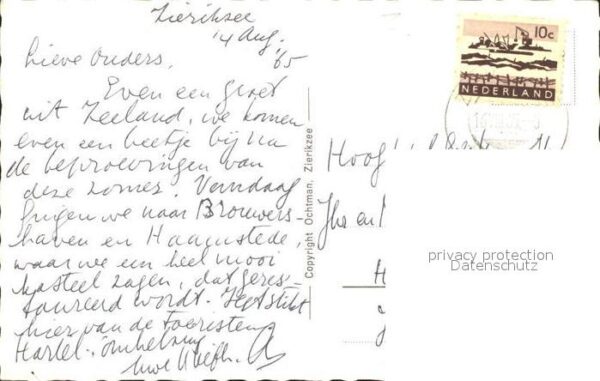 Zierikzee
14 Aug. '65
Lieve Ouders,
Even een groet
uit Zeeland, we komen
even een beetje bij na
de beproevingen van
deze zomer. Vandaag
gingen we naar Brouwers-
haven en Haamstede,
waar we een heel mooi
kasteel zagen, dat geres-
taureerd wordt.
hier van de toeristen,
Hartel. omhelzing
Copyright Ochtman, Zierikzee
10c
NEDERLAND
Hoog
privacy protection
Datenschutz